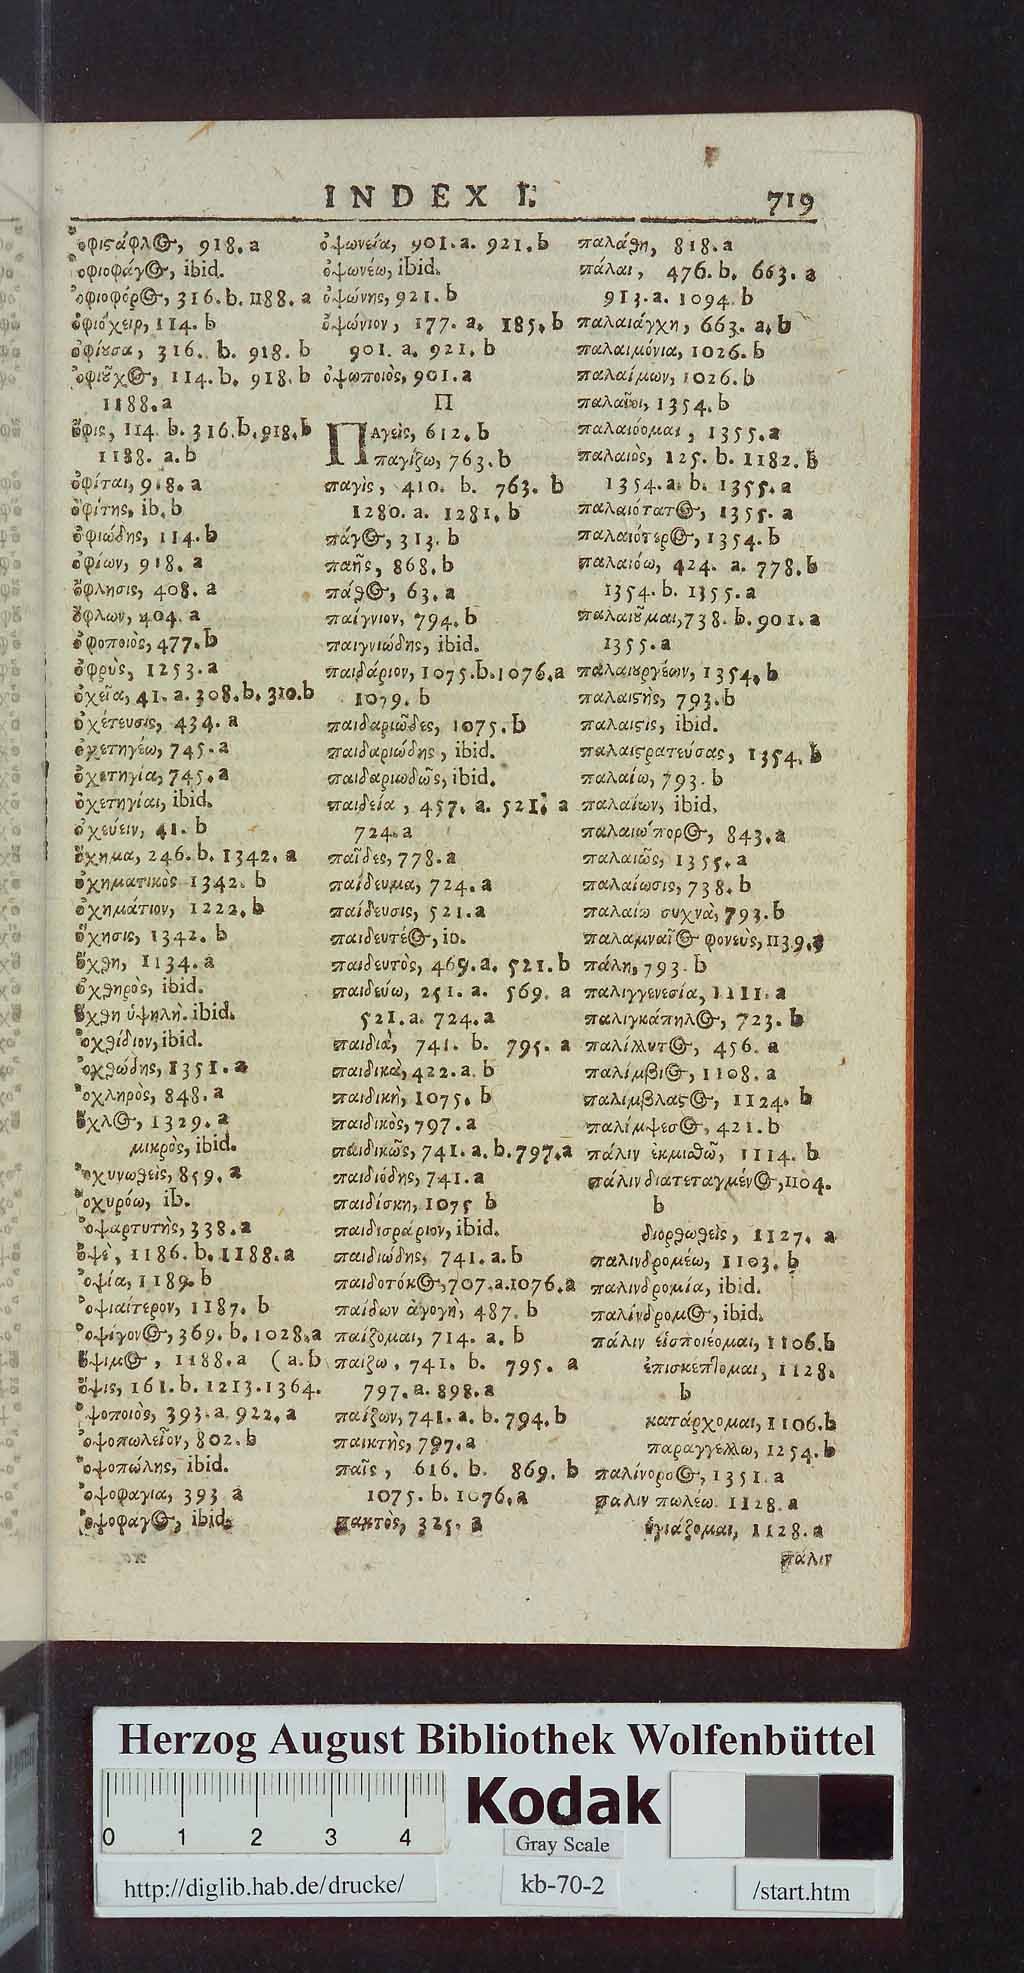 INDEX I.
719
ὀφιςάφλΘ, 918. a
ὀφιοφάγΘ, ibid.
ὀφιοφόρΘ, 316. b. 1188. a
ὀφιόχειρ, 114. b
ὀφίȣσα, 316. b. 918. b
ὀφιȣ͂χΘ, 114. b. 918. b
1188. a
ὄφις, 114. b. 316. b. 918. b
1188. a. b
ὀφίται, 918. a
ὀφίτης, ib. b
ὀφιώδης, 114. b
ὀφίων, 918. a
ὄφλησις, 408. a
ὄφλων, 404. a
ὀφοποιὸς, 477. b
ὀφρὺς, 1253. a
ὀχεῖα, 41. a. 308. b. 310. b
ὀχέτευσις, 434. a
ὀχετηγέω, 745. a
ὀχετηγία, 745. a
ὀχετηγίαι, ibid.
ὀχεύειν, 41. b
ὄχημα, 246. b. 1342. a
ὀχηματικὸς 1342. b
ὀχημάτιον, 1222. b
ὄχησις, 1342. b
ὄχθη, 1134. a
ὀχθηρὸς, ibid.
ὄχθη ὑψηλὴ. ibid.
ὀχθίδιον, ibid.
ὀχθώδης, 1351. a
ὀχληρὸς, 848. a
ὄχλΘ, 1329. a
μικρὸς, ibid.
ὀχυνωθεὶς, 859. a
ὀχυρόω, ib.
ὀψαρτυτὴς, 338. a
ὀψὲ, 1186. b. 1188. a
ὀψία, 1189. b
ὀψιαίτερον, 1187. b
ὀψίγονΘ, 369. b. 1028. a
ὄψιμΘ, 1188. a (a. b
ὄψις, 161. b. 1213. 1364.
ὀψοποιὸς, 393. a. 922. a
ὀψοπωλεῖον, 802. b
ὀψοπώλης, ibid.
ὀψοφαγια, 393 a
ὀψοφαγΘ, ibid.
ὀψωνεία, 901. a. 921. b
ὀψωνέω, ibid.
ὀψώνης, 921. b
ὀψώνιον, 177. a. 185. b
901. a. 921. b
ὀψωποιὸς, 901. a
Π
ΠΑγεὶς, 612. b
παγίζω, 763. b
παγὶς, 410. b. 763. b
1280. a. 1281. b
πάγΘ, 313. b
παῆς, 868. b
πάθΘ, 63. a
παίγνιον, 794. b
παιγνιώδης, ibid.
παιδάριον, 1075. b. 1076. a
1079. b
παιδαριῶδες, 1075. b
παιδαριώδης, ibid.
παιδαριωδῶς, ibid.
παιδεία, 457. a. 521. a
724. a
παῖδες, 778. a
παίδευμα, 724. a
παίδευσις, 521. a
παιδευτέΘ, ib.
παιδευτὸς, 469. a. 521. b
παιδεύω, 251. a. 569. a
521. a. 724. a
παιδιὰ, 741. b. 795. a
παιδικὰ, 422. a. b
παιδικὴ, 1075. b
παιδικὸς, 797. a
παιδικῶς, 741. a. b. 797. a
παιδιόδης, 741. a
παιδίσκη, 1075 b
παιδισράριον, ibid.
παιδιώδης, 741. a. b
παιδοτόκΘ, 707. a. 1076. a
παίδων ἀγογὴ, 487. b
παίζομαι, 714. a. b
παιζω, 741. b. 795. a
797. a. 898. a
παίζων, 741. a. b. 794. b
παικτὴς, 797. a
παῖς, 616. b. 869. b
1075. b. 1076. a
πακτὸς, 325. a
παλάθη, 818. a
πάλαι, 476. b. 663. a
913. a. 1094. b
παλαιάγχη, 663. a. b
παλαιμόνια, 1026. b
παλαίμων, 1026. b
παλαῖοι, 1354. b
παλαιόομαι, 1355. a
παλαιὸς, 125. b. 1182. b
1354. a. b. 1355. a
παλαιότατΘ, 1355. a
παλαιότερΘ, 1354. b
παλαιόω, 424. a. 778. b
1354. b. 1355. a
παλαιȣ͂μαι, 738. b. 901. a
1355. a
παλαιȣργέων, 1354. b
παλαιςὴς, 793. b
παλαιςις, ibid.
παλαιςρατεύσας, 1354. b
παλαίω, 793. b
παλαίων, ibid.
παλαιωπορΘ, 843. a
παλαιῶς, 1355. a
παλαίωσις, 738. b
παλαίω συχνὰ, 793. b
παλαμναῖΘ φονεὺς, 1139. a
πάλη, 793. b
παλιγγενεσία, 1111. a
παλιγκάπηλΘ, 723. b
παλίλλυτΘ, 456. a
παλίμβιΘ, 1108. a
παλίμβλαςΘ, 1124. b
παλίμψεσΘ, 421. b
πάλιν ἐκμιαθῶ, 1114. b
πάλιν διατεταγμένΘ, 1104.
b
διορθωθεὶς, 1127. a
παλινδρομέω, 1103. b
παλινδρομία, ibid.
παλίνδρομΘ, ibid.
πάλιν εἰσποιέομαι, 1106. b
ἐπισκέπτομαι, 1128.
b
κατάρχομαι, 1106. b
παραγγέλλω, 1254. b
παλίνοροΘ, 1351. a
παλιν πωλέω. 1128. a
ὑγιάζομαι, 1128. a
πάλιν
Herzog August Bibliothek Wolfenbüttel
Kodak
0 1 2 3 4
Gray Scale
http://diglib.hab.de/drucke/
kb-70-2
/start.htm